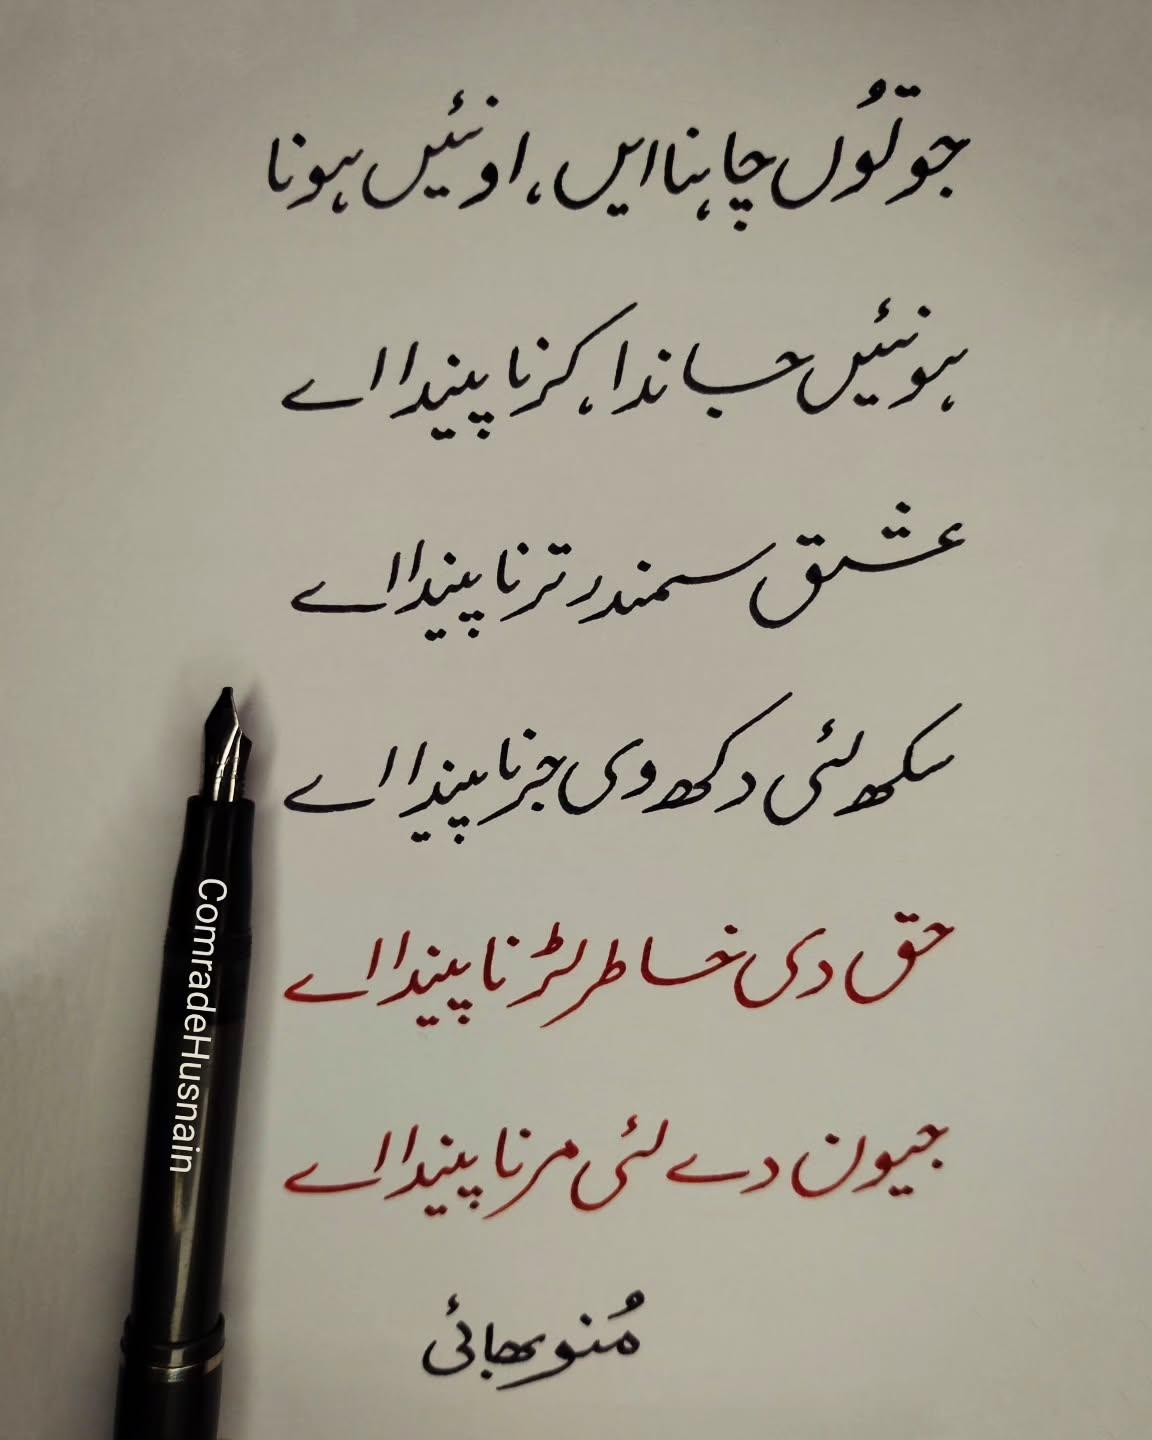 جو توُں چاہنا ایں، او نئیں ہونا
ہو نئیں جاندا، کرنا پیندا اے
عشق سمندر ترنا پیندا اے
سکھ لئی دکھ وی جرنا پیندا اے
حق دی خاطر لڑنا پیندا اے
جیون دے لئی مرنا پیندا اے
مُنو بھائی
ComradeHusnain